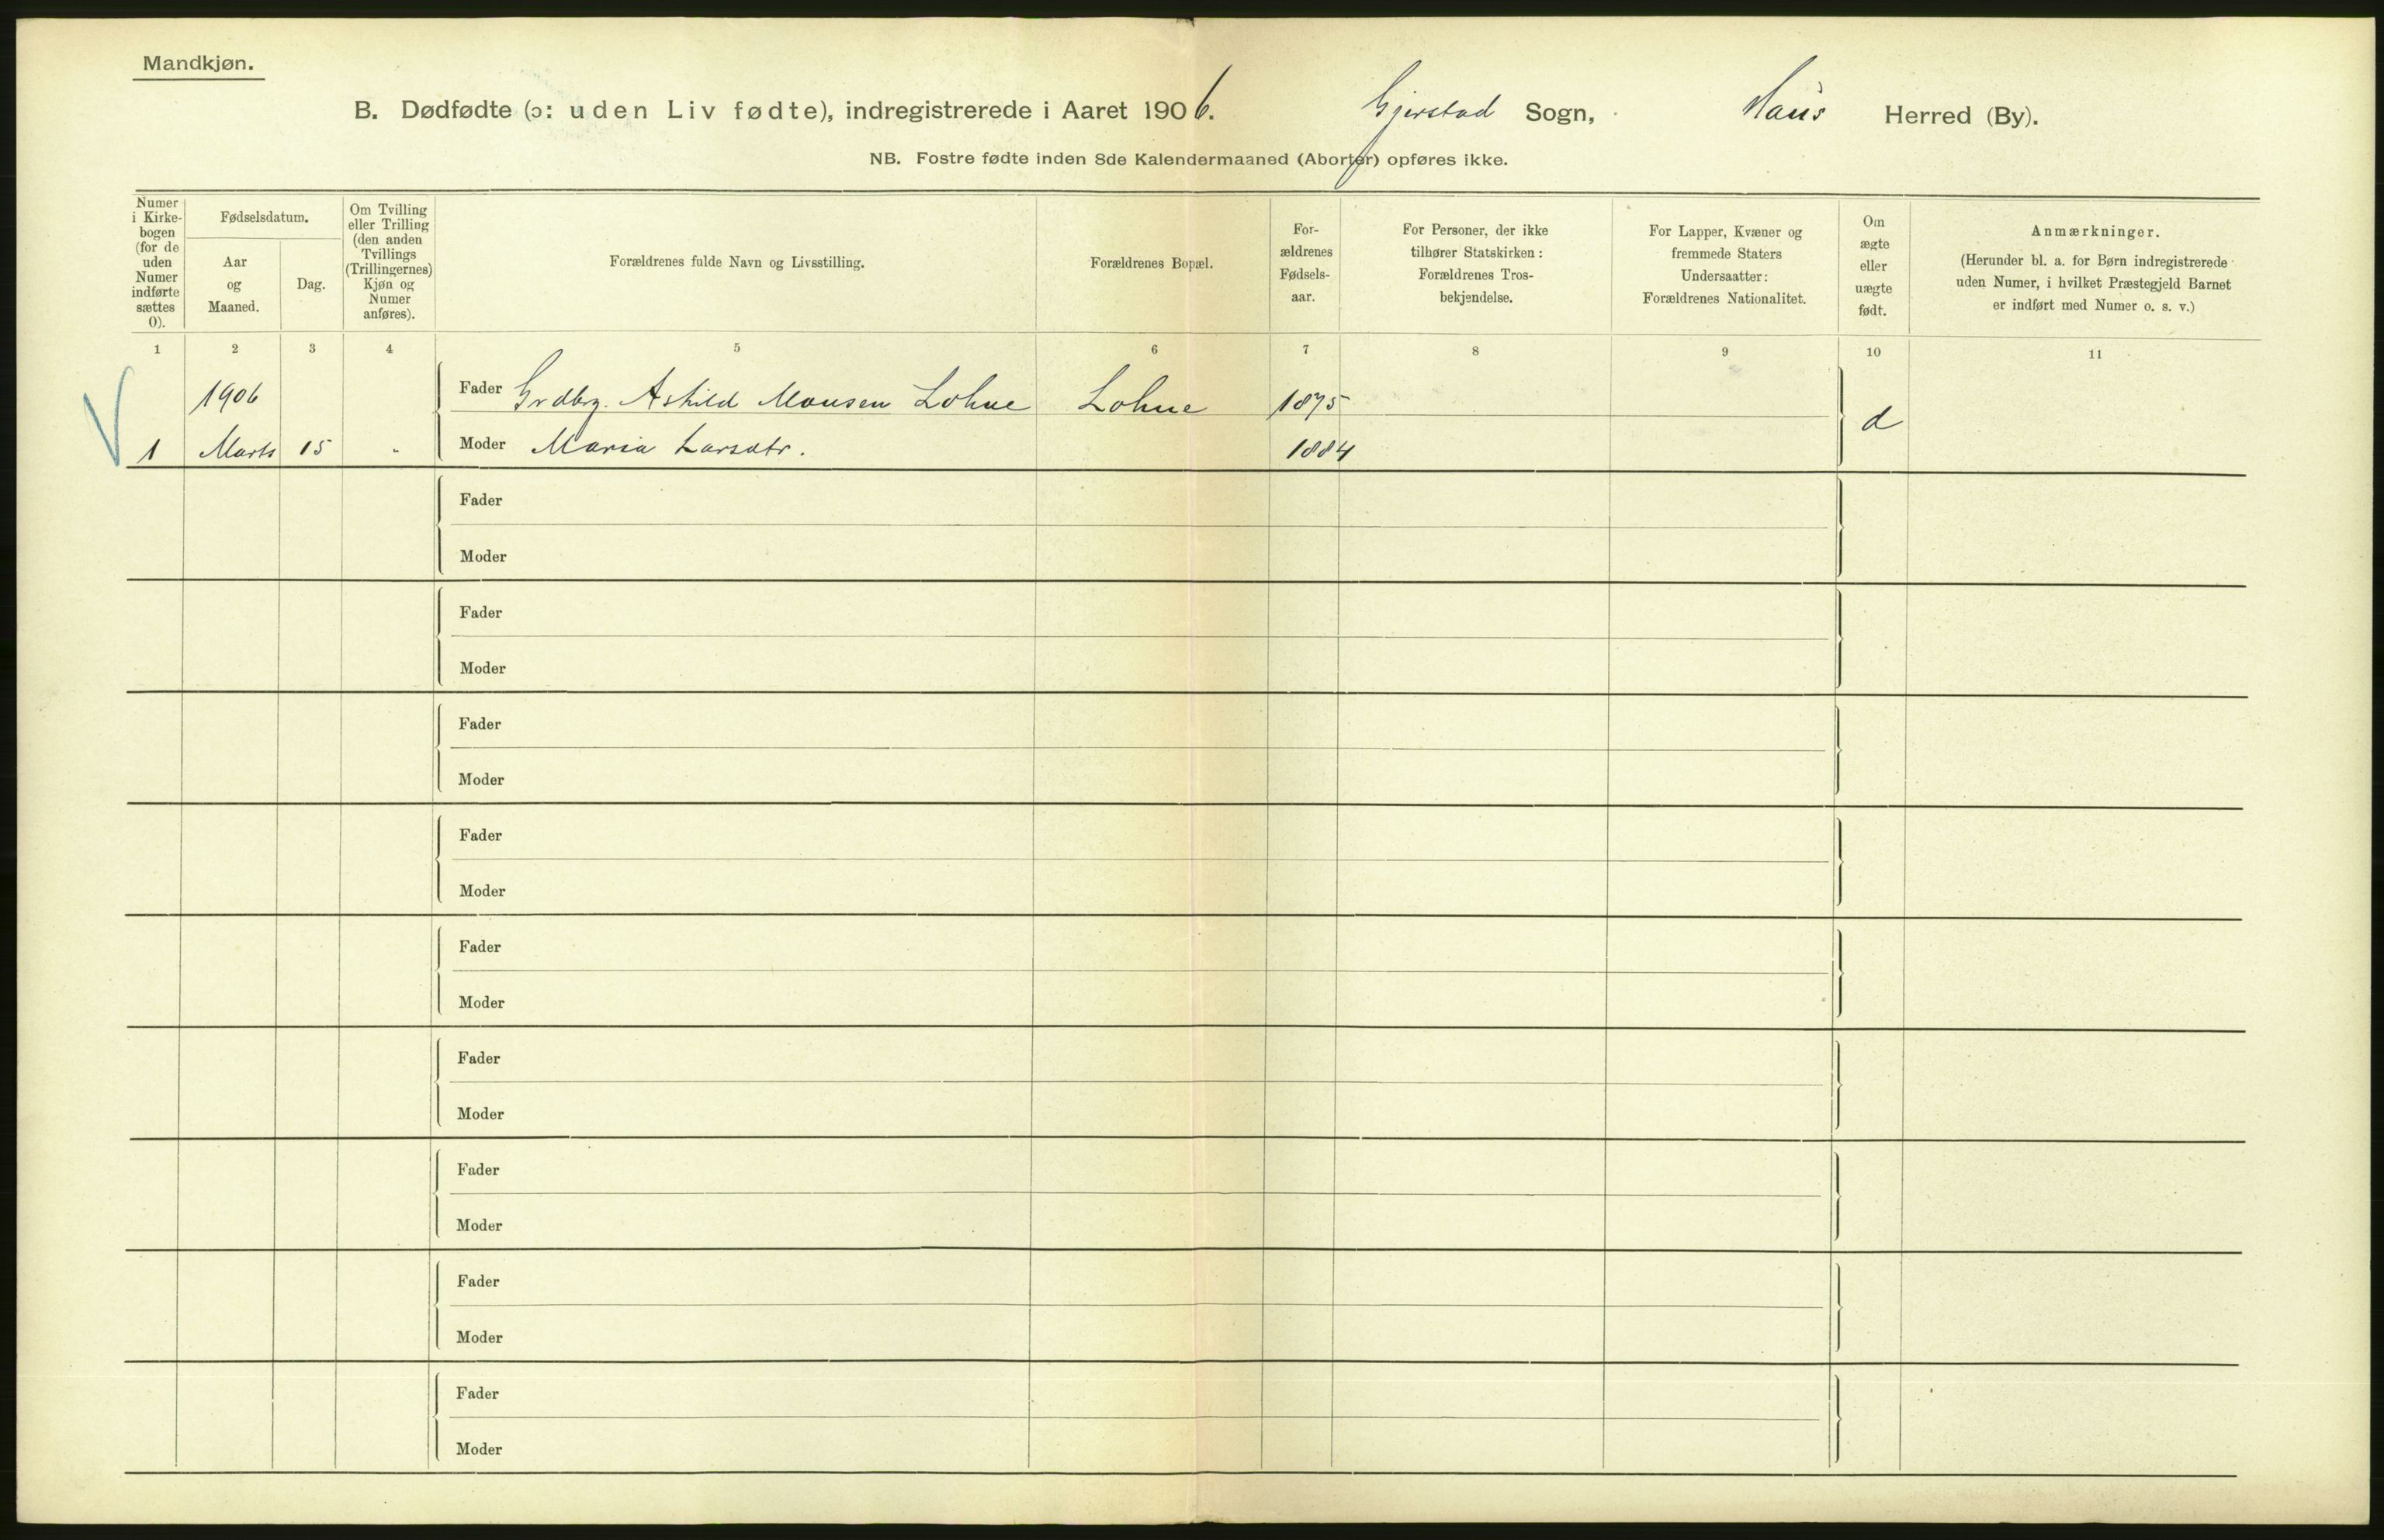 Mandkjøn.
B. Dødfødte (ɔ: uden Liv fødte), indregistrerede i Aaret 1906. Gjerstad Sogn, Haus Herred (By).
NB. Fostre fødte inden 8de Kalendermaaned (Aborter) opføres ikke.
Numer i Kirkebogen (for de uden Numer indførte sættes 0).
Fødselsdatum.
Aar og Maaned.
Dag.
Om Tvilling eller Trilling (den anden Tvillings (Trillingernes) Kjøn og Numer anføres).
Forældrenes fulde Navn og Livsstilling.
Forældrenes Bopæl.
Forældrenes Fødselsaar.
For Personer, der ikke tilhører Statskirken: Forældrenes Trosbekjendelse.
For Lapper, Kvæner og fremmede Staters Undersaatter: Forældrenes Nationalitet.
Om ægte eller uægte født.
Anmærkninger.
(Herunder bl. a. for Børn indregistrerede uden Numer, i hvilket Præstegjeld Barnet er indført med Numer o. s. v.)
1 2 3 4 5 6 7 8 9 10 11
1906 Fader Grdbrg. Askild Monsen Lohne Lohne 1875
1 Marts 15 - Moder Maria Larsdtr. 1884 d
Fader
Moder
Fader
Moder
Fader
Moder
Fader
Moder
Fader
Moder
Fader
Moder
Fader
Moder
Fader
Moder
Fader
Moder